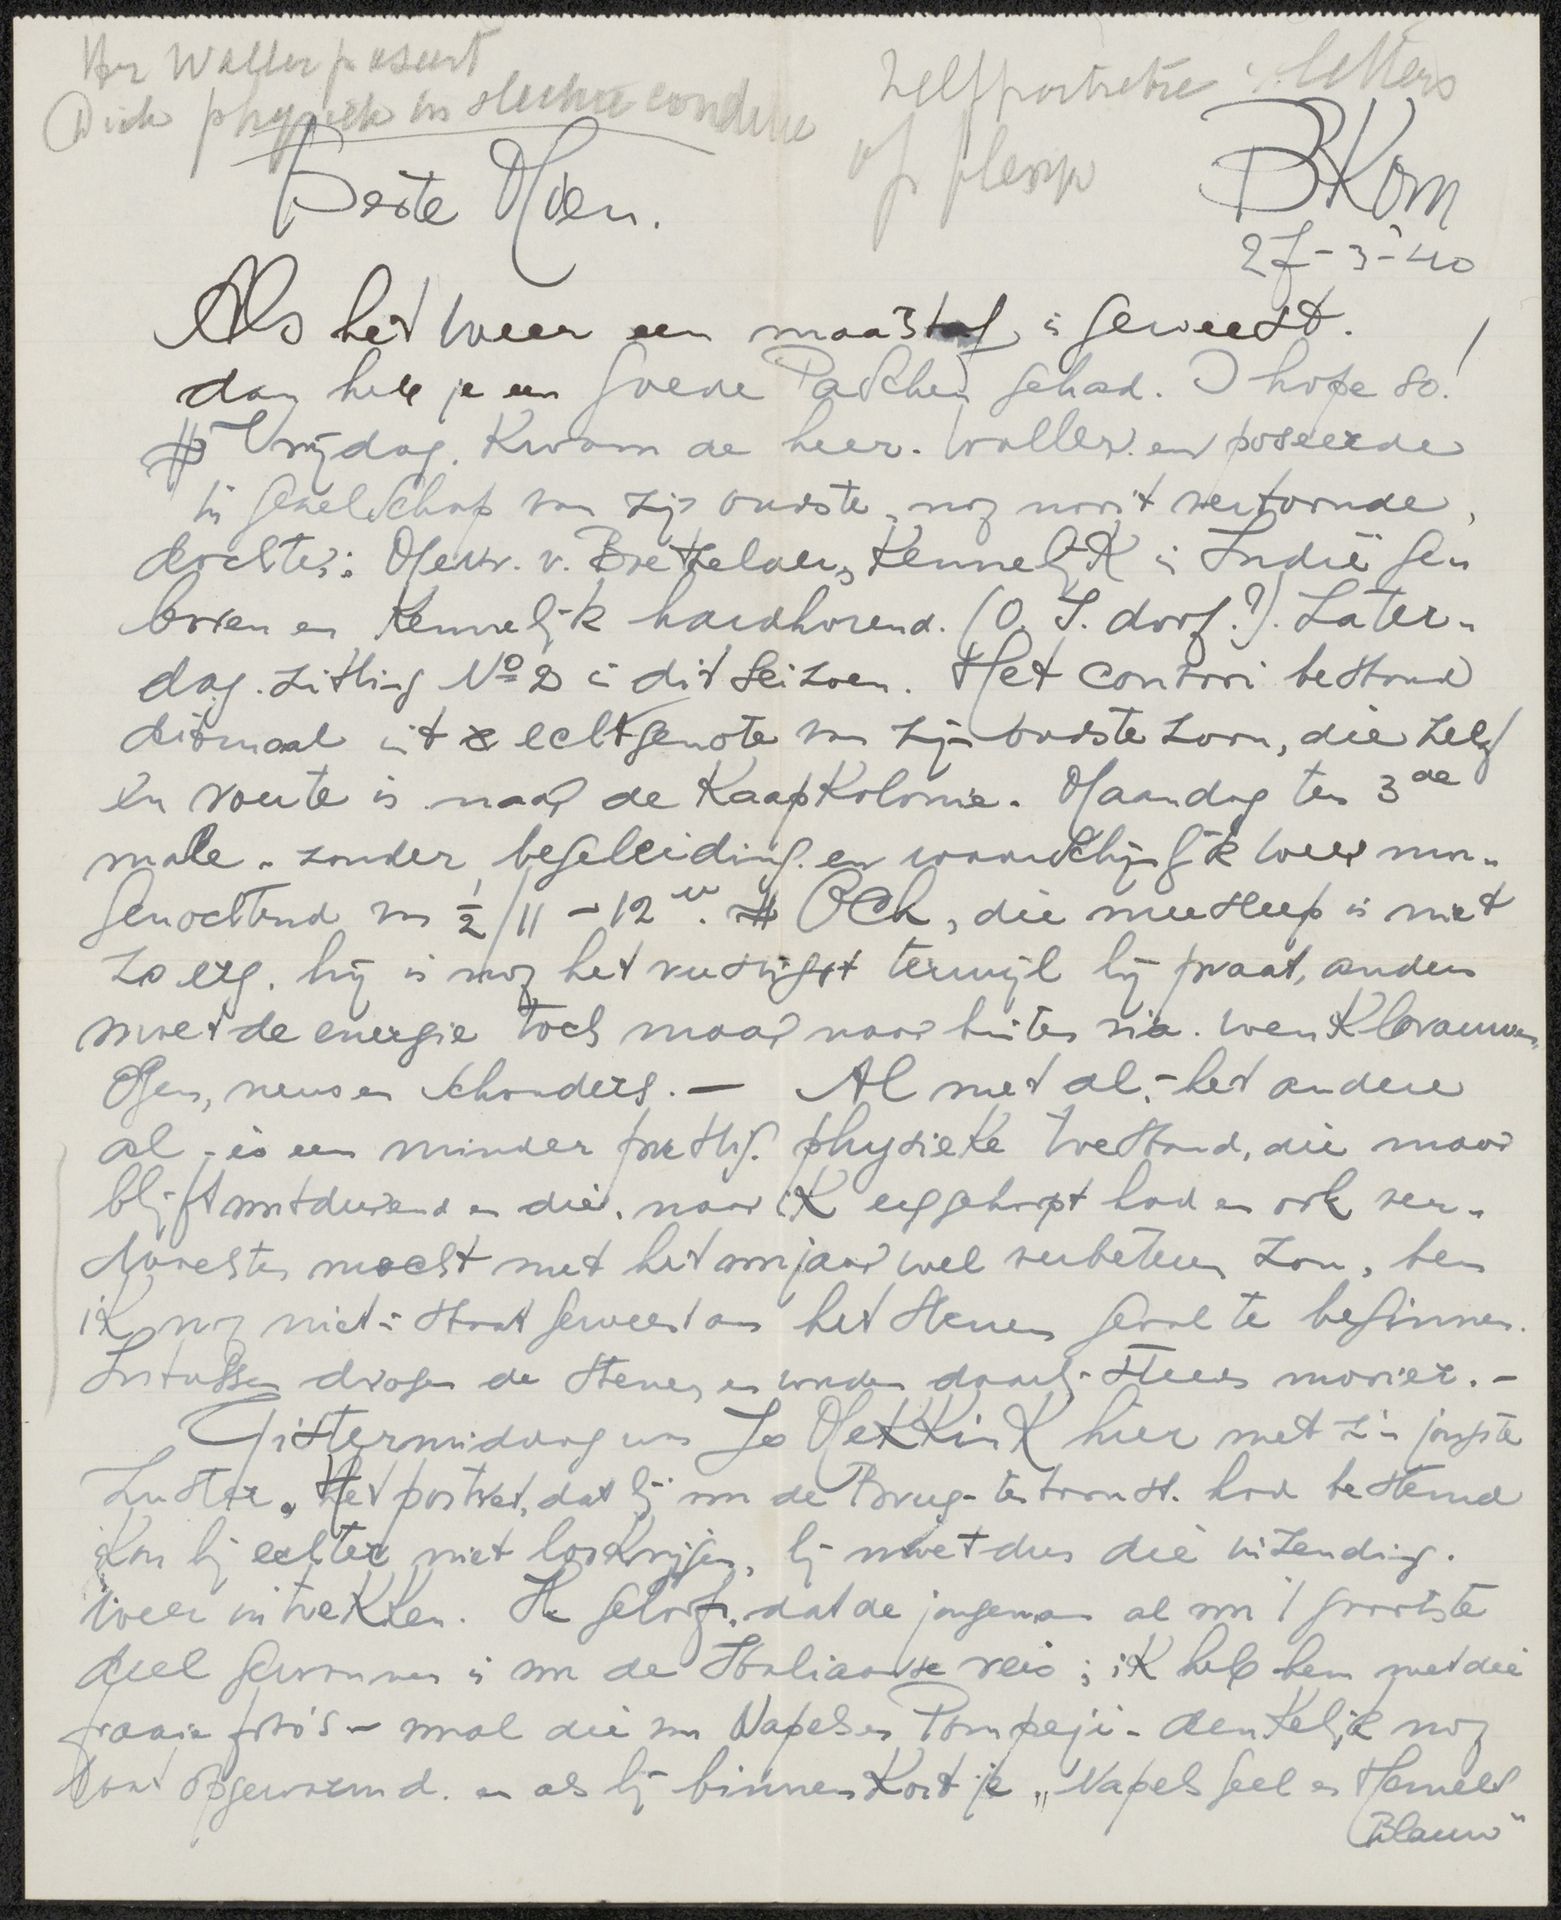 Hr Waller poseert
Dick physiek in slechte conditie
Zelfportretten i. letters
of
Beste Mien.
BKom
27-3-'40
Als het weer een maatstaf is geweest.
dan heb je een goede Paschen gehad. I hope so!
# Vrijdag. Kwam de heer. Waller. en poseerde
in gezelschap van zijn oudste, nog nooit vertoonde,
dochter: Mevr. v. kennelijk in Indië ge-
boren en kennelijk hardhorend. (O. I. doof.?). Zater-
dag. zitting No 2 in dit seizoen. Het convooi bestond
ditmaal uit echtgenote van zijn oudste zoon, die zelf
en route is naar de Kaapkolonie. Maandag ten 3de
male - zonder begeleiding. en waarschijnlijk weer mor-
genochtend van ½/11 - 12 u. # Och, die nerstep is niet
zo erg. hij is nog het rustigst terwijl hij praat, anders
moet de energie toch maar naar buiten via. wenkbrauwen,
Ogen, neus en schouders. — Al met al, - het andere
al - is een minder prettig. physieke toestand, die maar
blijft voortdurend en die, naar ik erg gehoopt had en ook ver-
wachten mocht met het voorjaar wel verbeteren zou, ben
ik nog niet in staat geweest om het stenen geval te beginnen.
Intussen drogen de stenen en worden daarbij steeds mooier. -
Gistermiddag was Jo Mekkink hier met z'n jongste
zuster. Het portret, dat hij voor de Brug-tentoonst. had bestemd
kon hij echter niet loskrijgen, hij moet dus die inzending.
weer intrekken. Ik geloof, dat de jongeman al voor 't grootste
deel gewonnen is voor de Italiaanse reis; ik heb hem met die
fraaie foto's - vooral die van Napels en Pompeji - denkelijk nog
wat opgewarmd. en als hij binnenkort je „Napels geel en Hemels
Blauw"